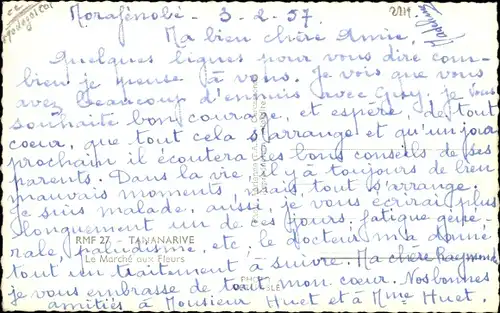 Morafénobé - 3-2-57.
Ma bien chère Amie,
Quelques lignes pour vous dire com-
bien je pense à vous. Je vois que vous
avez beaucoup d'ennuis avec Guy, je vous
souhaite bon courage, et espère, de tout
coeur, que tout cela s'arrange et qu'un jour
prochain il écoutera les bons conseils de ses
parents. Dans la vie il y a toujours de bien
mauvais moments mais tout s'arrange.
Je suis malade, aussi, je vous écrirai plus
longuement un de ces jours, fatigue géné-
rale, paludisme, etc, le docteur m'a donné
RMF 27 - TANANARIVE
Le Marché aux Fleurs
tout un traitement à suivre. Ma chère Raymonde
je vous embrasse de tout mon coeur. Nos bonnes
amitiés à Monsieur Huet et à Mme Huet.